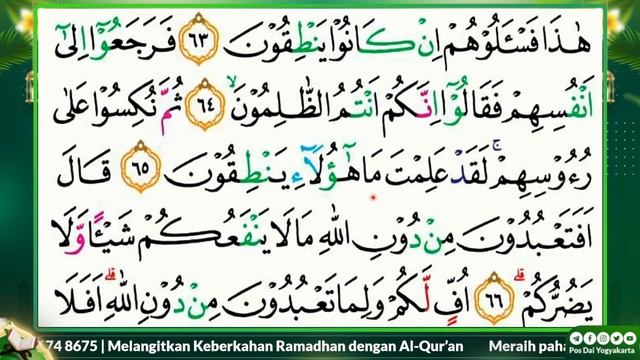 هٰذَا فَسْـَٔلُوْهُمْ اِنْ كَانُوْا يَنْطِقُوْنَ ٦٣ فَرَجَعُوْٓا اِلٰٓى
اَنْفُسِهِمْ فَقَالُوْٓا اِنَّكُمْ اَنْتُمُ الظّٰلِمُوْنَ ۙ ٦٤ ثُمَّ نُكِسُوْا عَلٰى
رُءُوْسِهِمْ ۚ لَقَدْ عَلِمْتَ مَا هٰٓؤُلَاۤءِ يَنْطِقُوْنَ ٦٥ قَالَ
اَفَتَعْبُدُوْنَ مِنْ دُوْنِ اللّٰهِ مَا لَا يَنْفَعُكُمْ شَيْـًٔا وَّلَا
يَضُرُّكُمْ ۗ ٦٦ اُفٍّ لَّكُمْ وَلِمَا تَعْبُدُوْنَ مِنْ دُوْنِ اللّٰهِ ۗ اَفَلَا
74 8675 | Melangitkan Keberkahan Ramadhan dengan Al-Qur'an Meraih
Pos Dai Yogyakarta